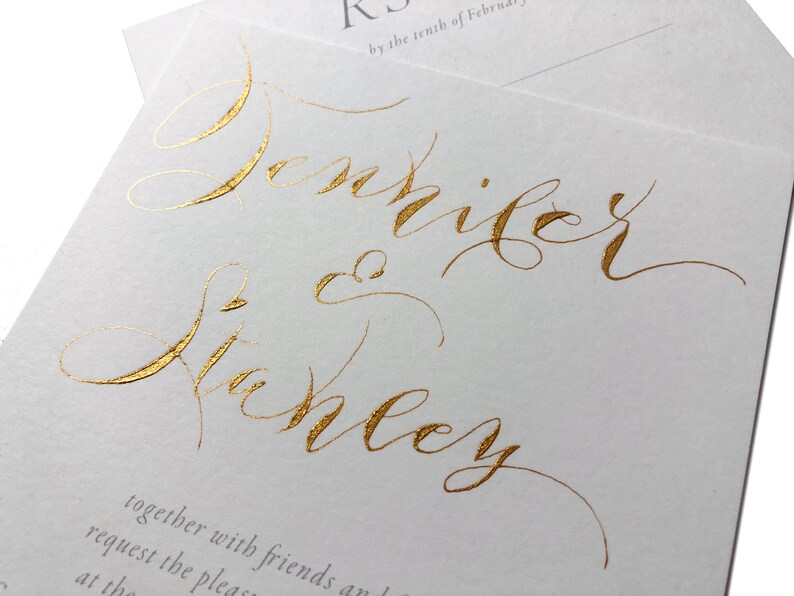 RS
by the tenth of February
Jennifer
&
Stanley
together with friends and
request the pleas
at the